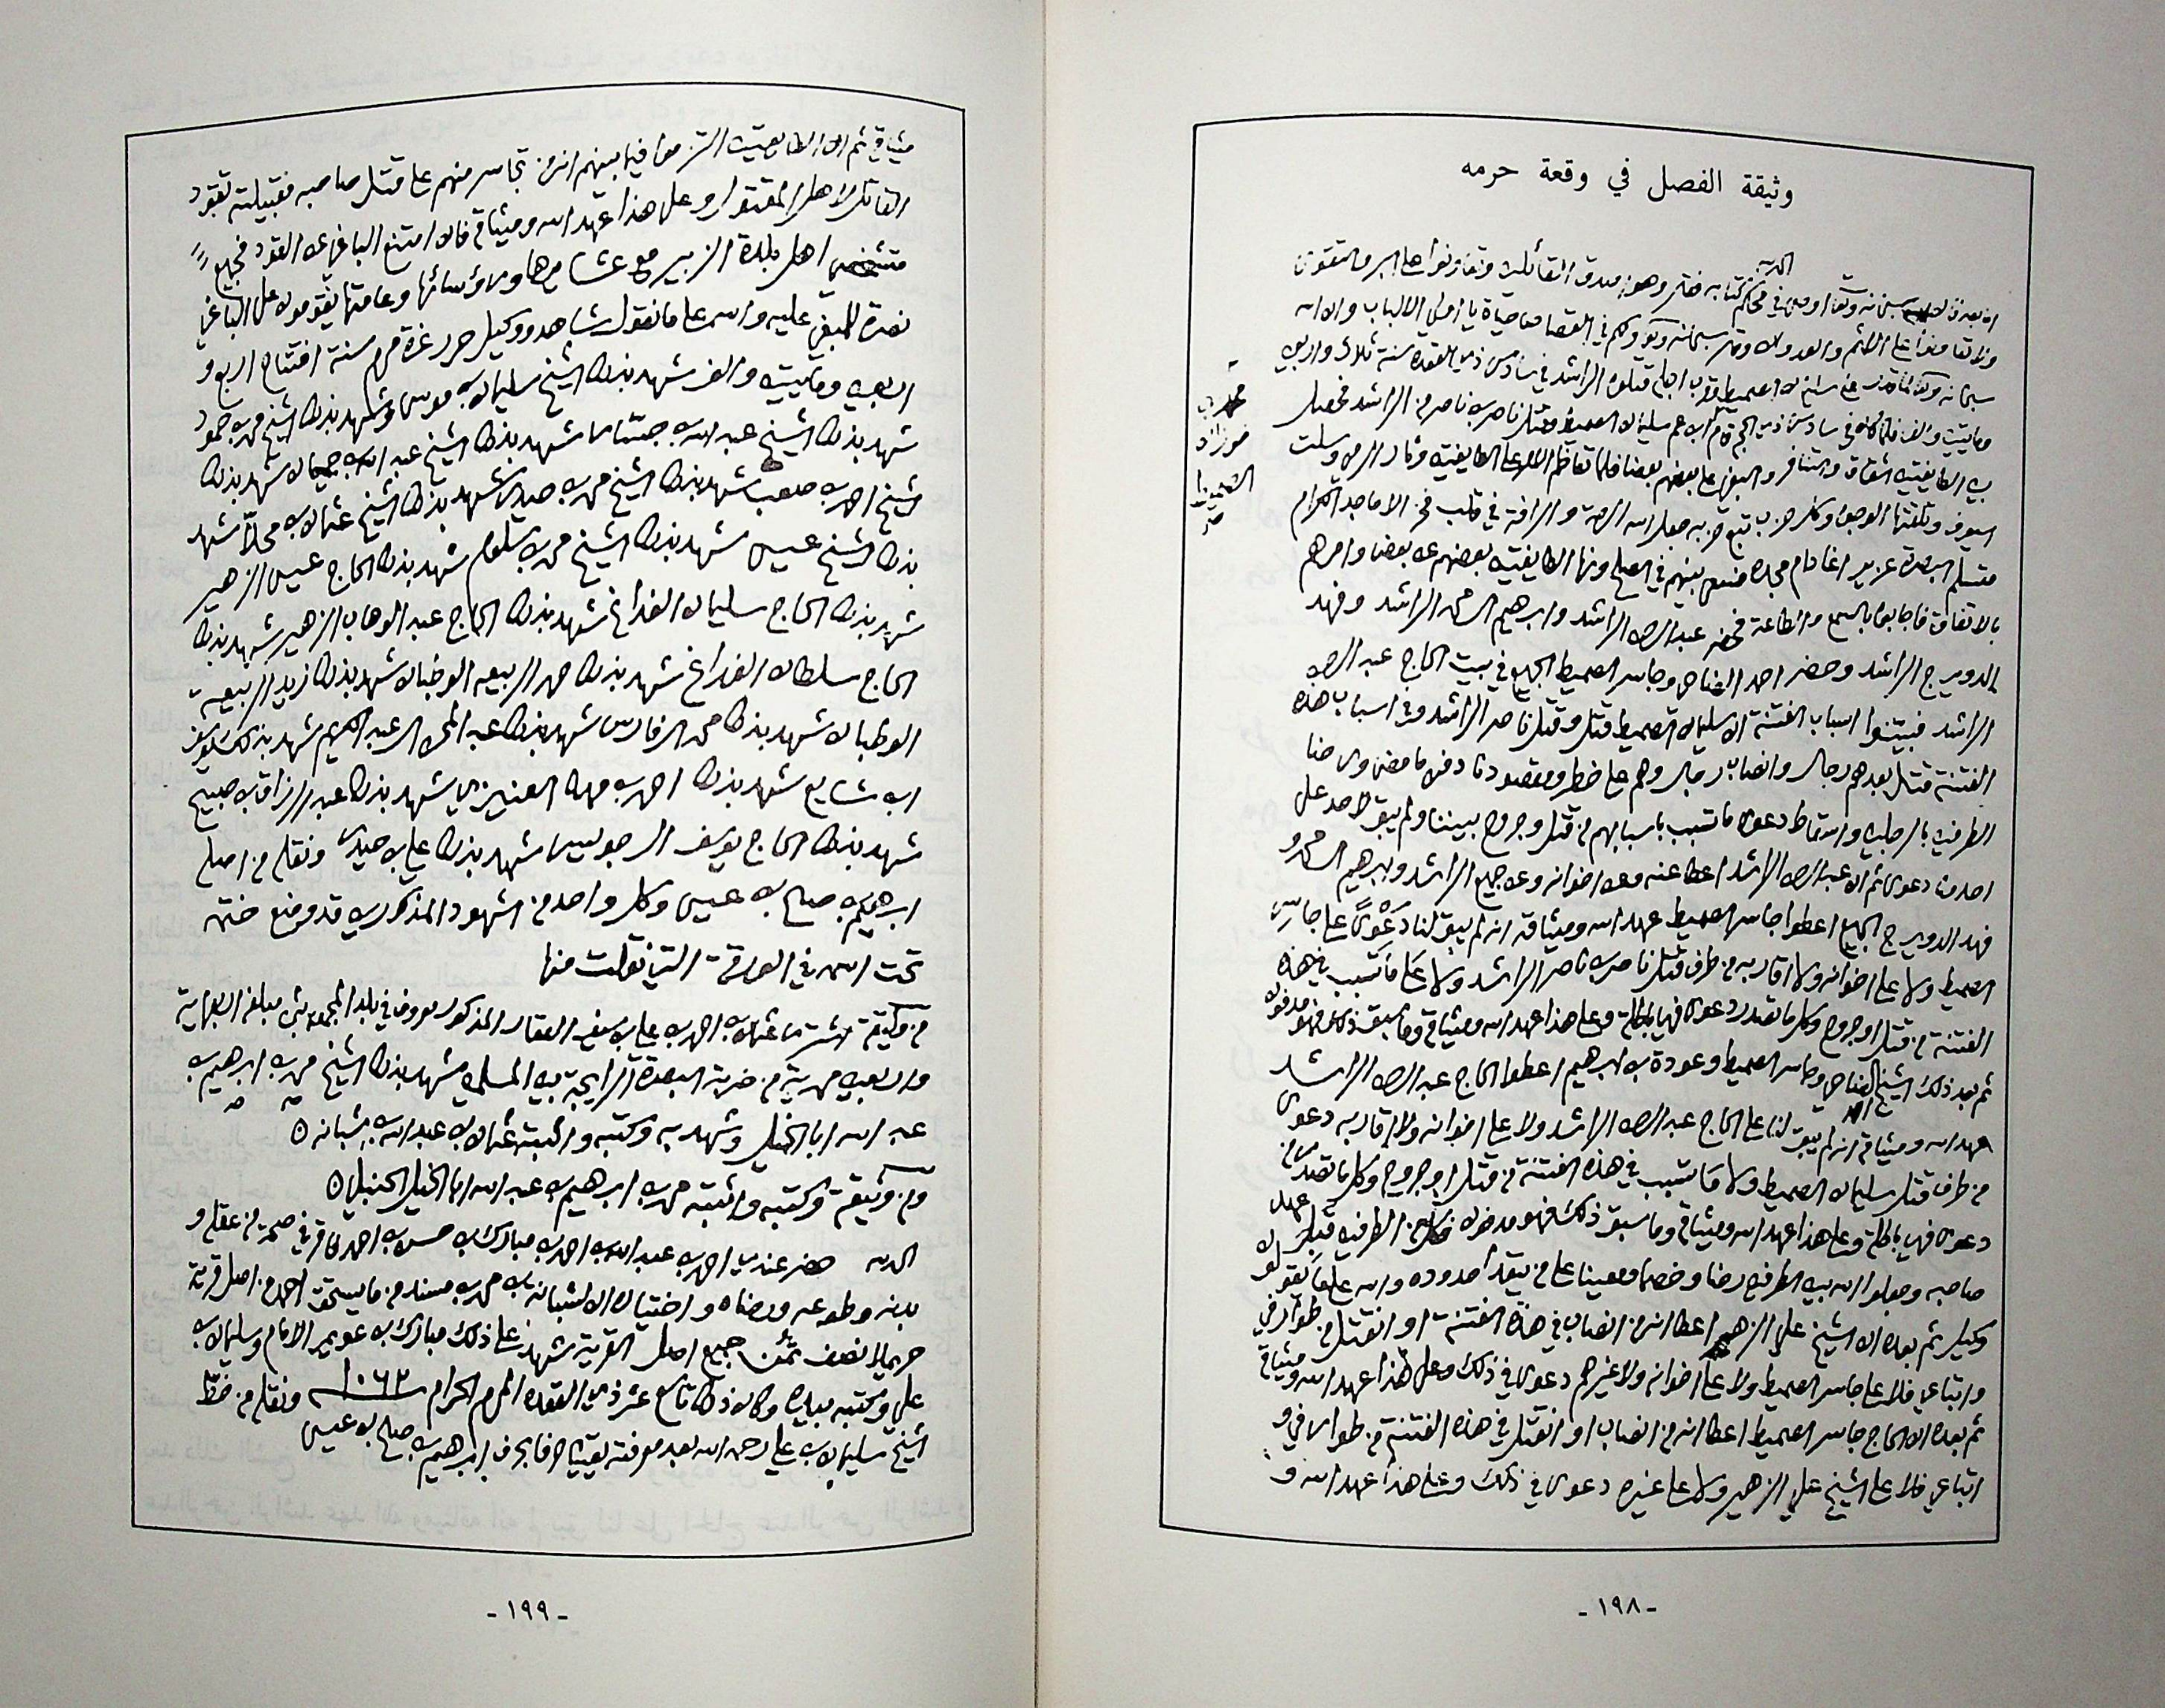 وثيقة الفصل في وقعة حرمه
الحمد لله
سبحانه وتعالى اوصى في محكم كتابه فقال وهو اصدق القائلين وتعاونوا على البر والتقوى
ولا تعاونوا على الاثم والعدوان وقال سبحانه وتعالى ولكم في القصاص حياة يا اولي الالباب وان الله
سبحانه وتعالى سليمان الصميط قتلوه الراشد في سادس ذي القعدة سنة ثلاث واربعين
ومايتين والف فلما كان في سادس ذي الحجة قام ابن عم سليمان الصميط وقتل ناصر بن ناصر من الراشد فحصل
بين الطايفتين الشقاق والتنافر والبغي على بعضهم بعضا فلما تعاظم الامر على الطايفتين وثار الرمي وسلت
السيوف وتلفتها الوجوه وكل حزب تبع حزبه جعل الله الرحمة والرافة في قلب فخر الاماجد الكرام
متسلم البصرة عزير اغا دام مجده فسعى بينهم في الصلح ونها الطايفتين بعضهم عن بعض وامرهم
بالاتفاق فاجابوا بالسمع والطاعة فحضر عبد الرحمن الراشد وابرهيم المحمد الراشد وفهد
الدويرج الراشد وحضر احمد الصالح وجاسر الصميط الجميع في بيت الحاج عبد الرحمن
الراشد فبيتنوا اسباب الفتنة ان سليمان الصميط قتل وقتل ناصر الراشد وفي اسباب هذه
الفتنة قتل بعدهم رجال وانصاب رجال وهم على خطر ومقصودنا دفن ما مضى ورضا
الطرفين بالرجلين واسقاط دعوى ما تسبب باسبابهم من قتل وجروح بيننا ولم يبق لاحد على
احد منا دعوى ثم ان عبد الرحمن الراشد اعطا عنه وعن اخوانه وعن جميع الراشد وابرهيم المحمد و
فهد الدويرج الجميع اعطوا جاسر الصميط عهد الله وميثاقه انه لم يبق لنا دعوىً على جاسر
الصميط ولا على اخوانه ولا اقاربه من طرف قتل ناصر بن ناصر الراشد ولا على ما تسبب في هذه
الفتنة من قتل او جروح وكل ما تصدر دعوى فهي باطلة وعلى هذا عهد الله وميثاقه وما سبق ذلك فهو مدفون
ثم بعد ذلك الشيخ احمد الصالح وجاسر الصميط وعودة بن ابرهيم اعطوا الحاج عبد الرحمن الراشد
عهد الله وميثاقه انه لم يبق لنا على الحاج عبد الرحمن الراشد ولا على اخوانه ولا اقاربه دعوى
من طرف قتل سليمان الصميط ولا ما تسبب في هذه الفتنة من قتل او جروح وكل ما تصدر من
دعوى فهي باطلة وعلى هذا عهد الله وميثاقه وما سبق ذلك فهو مدفون فكل من الطرفين قبل عهد
صاحبه وجعلوا الله بين الطرفين رضا وخصما ومعينا على من يتعدا حدوده والله على ما نقول
وكيل ثم بعده ان الشيخ علي الزهير اعطا انه من انصاب في هذه الفتنة او انقتل من طوارفي
واتباعي فلا على جاسر الصميط ولا على اخوانه ولا غيرهم دعوى في ذلك وعلى هذا عهد الله وميثاقه
ثم بعده ان الحاج جاسر الصميط اعطا انه من انصاب او انقتل في هذه الفتنة من طوارفي و
اتباعي فلا على الشيخ علي الزهير ولا على غيره دعوى في ذلك وعلى هذا عهد الله و
ميثاقه ثم ان الطايفتين التزموا فيما بينهم انه من تجاسر منهم على قتل صاحبه فقبيلته تقود
القاتل لاهل المقتول وعلى هذا عهد الله وميثاقه فان امتنع الباغي عن القود فجميع
اهل بلدة الزبير مع عشايرها ورؤسائها وعامتها يقومون على الباغي
نصرة للمبغي عليه والله على ما نقول شاهد ووكيل حرر غرة محرم سنة افتتاح اربع و
اربعين ومايتين والف شهد بذلك الشيخ سليمان بن موسى وشهد بذلك الشيخ محمد بن حمود
شهد بذلك الشيخ عبد الله بن شهد بذلك الشيخ عبد الله بن شهد بذلك
الشيخ احمد بن صعب شهد بذلك الشيخ محمد بن شهد بذلك الشيخ عثمان بن محلا شهد
بذلك الشيخ عيسى شهد بذلك الشيخ محمد بن سلوم شهد بذلك الحاج عيسى الزهير
شهد بذلك الحاج سليمان الفداغ شهد بذلك الحاج عبد الوهاب الزهير شهد بذلك
الحاج سلطان الفداغ شهد بذلك حمد الربيعه الوطبان شهد بذلك زيد الربيعه
الوطبان شهد بذلك محمد الفارس شهد بذلك عبد المحسن العبد الكريم شهد بذلك يوسف
ابن شايع شهد بذلك احمد بن مهنا العنيزي شهد بذلك عبد الرزاق بن صبيح
شهد بذلك الحاج يوسف شهد بذلك علي بن حيدر ونقله من اصله
ابرهيم بن صالح بن عيسى وكل واحد من الشهود المذكورين قد وضع ختمه
تحت اسمه في الورقة التي نقلت منها
من وثيقة اشترا عثمان بن احمد بن علي بن سيف العقار المذكور معروف في بلد المجمعه بثمن مبلغه اربعماية
واربعين محمدية من ضربة البصرة الرايجة بين المسلمين شهد بذلك الشيخ محمد بن ابرهيم بن
عبد الله ابا الخيل وشهد به وكتبه واثبته عثمان بن عبد الله بن شبانه
ومن وثيقة وكتبه واثبته محمد بن ابرهيم بن عبد الله ابا الخيل الحنبلي
الحمد لله حضر عندي احمد بن عبد الله بن احمد بن مبارك بن حسن بن احمد فاقر في صحة من عقله و
بدنه وطوعه ورضاه واختياره ان لشبانه بن محمد بن مسند من ما يستحق احمد من اصل قرية
حريملا نصف ثمن جميع اصل القرية شهد على ذلك مبارك بن عويمر الامام وسليمان بن
علي وكتبه بيده وكان ذلك تاسع عشر ذي القعده المحرم الحرام ١٠٦٣ ونقله من خط
الشيخ سليمان بن علي رحمه الله بعد معرفته يقينا حرفا بحرف ابرهيم بن صالح بن عيسى
- ١٩٨ -
- ١٩٩ -